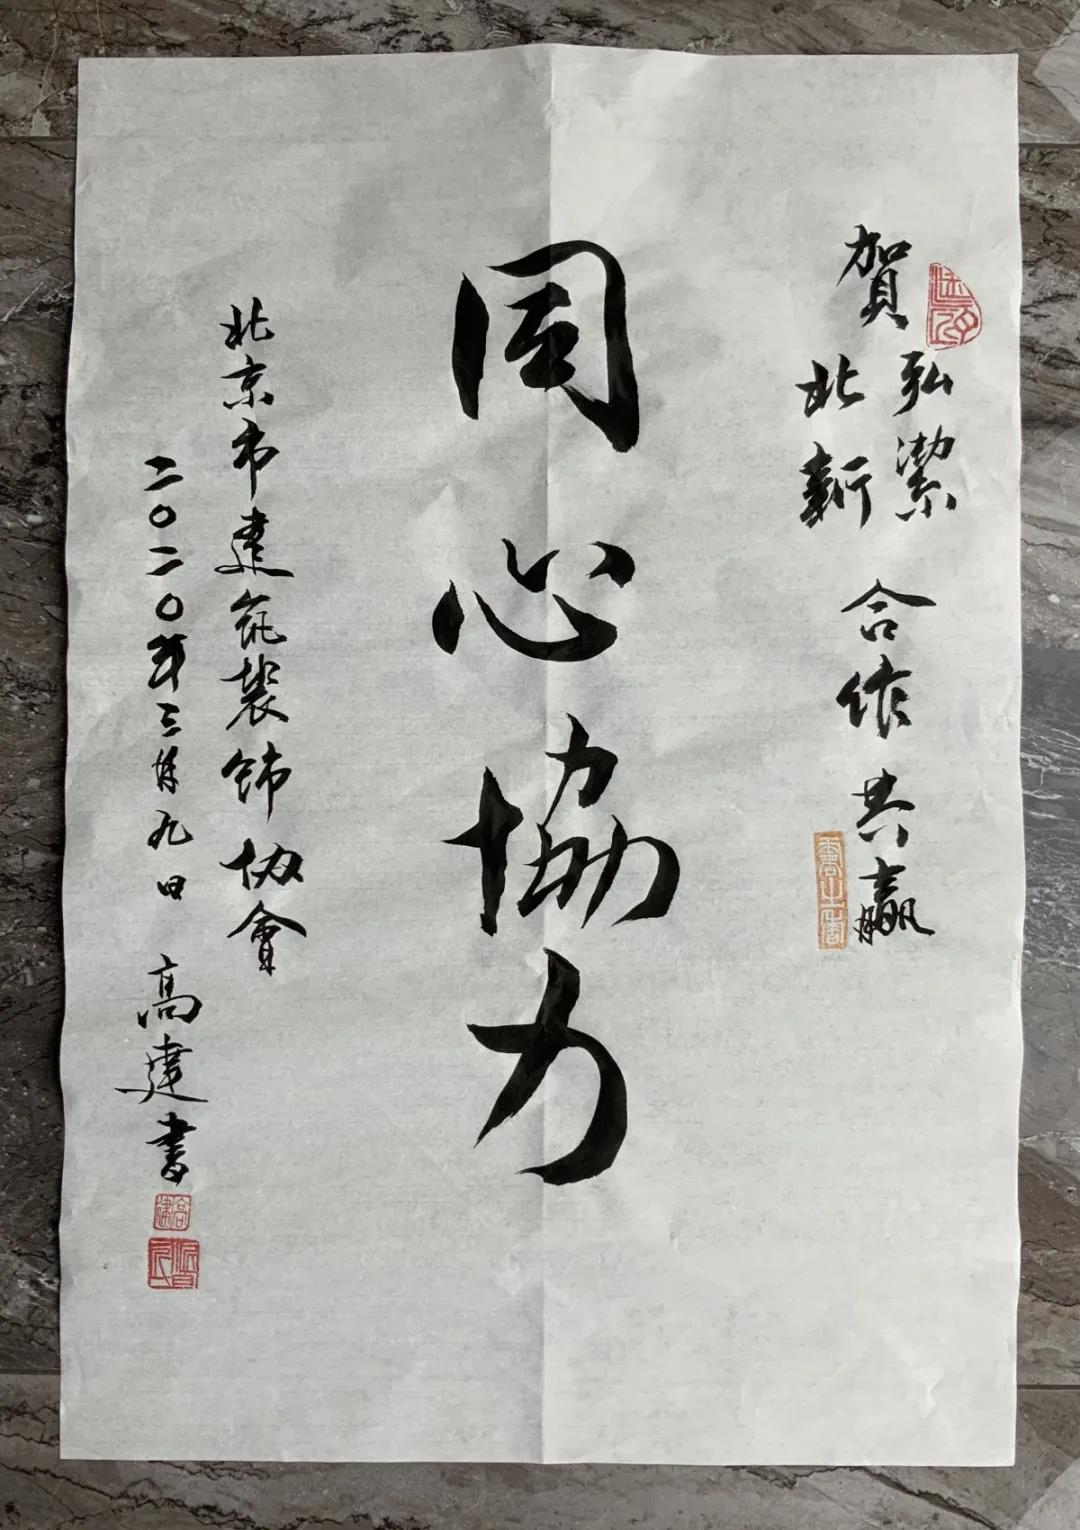 賀
弘潔
北新
合作共贏
同心協力
北京市建筑裝飾协會
二〇二〇年三月九日 高建書
高建